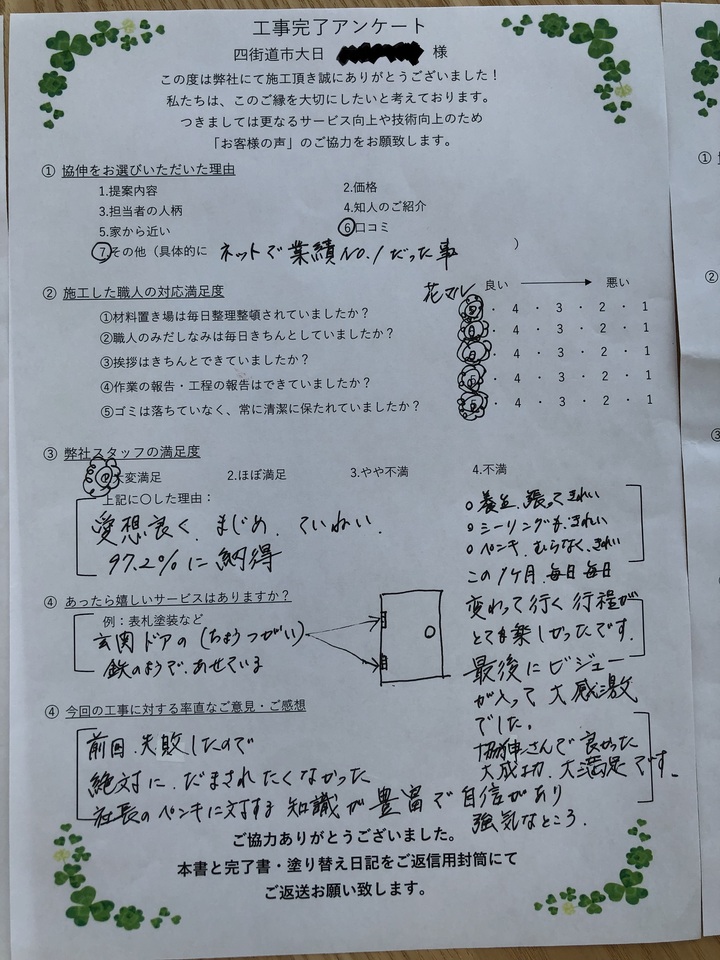 工事完了アンケート
四街道市大日 様
この度は弊社にて施工頂き誠にありがとうございました！
私たちは、このご縁を大切にしたいと考えております。
つきましては更なるサービス向上や技術向上のため
「お客様の声」のご協力をお願致します。
① 協伸をお選びいただいた理由
1.提案内容 2.価格
3.担当者の人柄 4.知人のご紹介
5.家から近い 6口コミ
7.その他（具体的に ネットで業績NO.1だった事 ）
② 施工した職人の対応満足度 花マル 良い 悪い
①材料置き場は毎日整理整頓されていましたか？ 5 ・ 4 ・ 3 ・ 2 ・ 1
②職人のみだしなみは毎日きちんとしていましたか？ 5 ・ 4 ・ 3 ・ 2 ・ 1
③挨拶はきちんとできていましたか？ 5 ・ 4 ・ 3 ・ 2 ・ 1
④作業の報告・工程の報告はできていましたか？ 5 ・ 4 ・ 3 ・ 2 ・ 1
⑤ゴミは落ちていなく、常に清潔に保たれていましたか？ 5 ・ 4 ・ 3 ・ 2 ・ 1
③ 弊社スタッフの満足度
大変満足 2.ほぼ満足 3.やや不満 4.不満
上記に〇した理由：
愛想良く、まじめ、ていねい、
97.2%に納得
④ あったら嬉しいサービスはありますか？
例：表札塗装など
玄関ドアの（ちょうつがい）
鉄のようで、あせている
○養生、張ってきれい
○シーリングも、きれい
○ペンキ、むらなく、きれい
この1ケ月、毎日毎日
変わって行く行程が
とても楽しかったです。
最後にビジュー
が入って大感激
でした。
協伸さんで良かった
大成功、大満足です。
④ 今回の工事に対する率直なご意見・ご感想
前回、失敗したので
絶対に、だまされたくなかった
社長のペンキに対する知識が豊富で自信があり
強気なところ。
ご協力ありがとうございました。
本書と完了書・塗り替え日記をご返信用封筒にて
ご返送お願い致します。
①
②
③